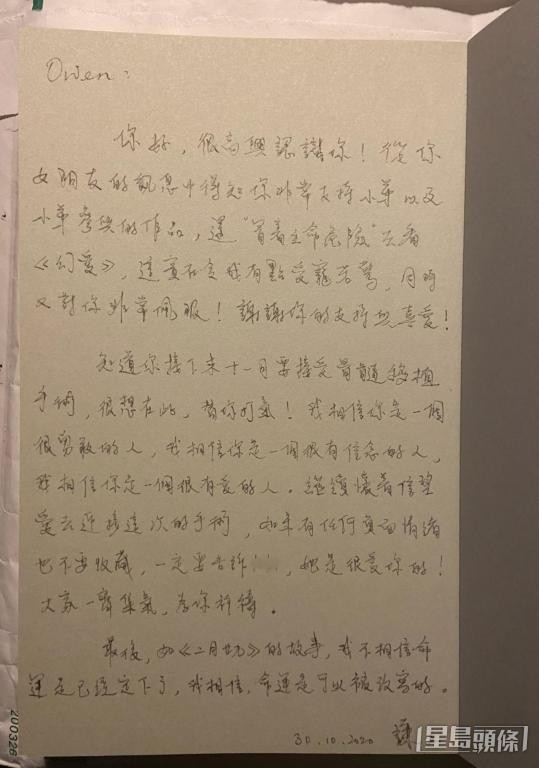 Owen :
你好，很高興認識你！從你
女朋友的訊息中得知你非常支持小弟以及
小弟參與的作品，還“冒着生命危險”去看
《幻愛》，這實在令我有點受寵若驚，同時
又對你非常佩服！謝謝你的支持與真愛！
知道你接下來十一月要接受骨髓移植
手術，很想在此，替你打氣！我相信你是一個
很勇敢的人，我相信你是一個很有信念的人，
我相信你是一個很有愛的人。繼續懷着信望
愛去迎接這次的手術，如果有任何負面情緒
也不要收藏，一定要告訴，她是很愛你的！
大家一齊集氣，為你祈禱。
最後，如《二月廿九》的故事，我不相信命
運是已經定下了，我相信，命運是可以被改寫的。
30.10.2020
星島頭條
200326